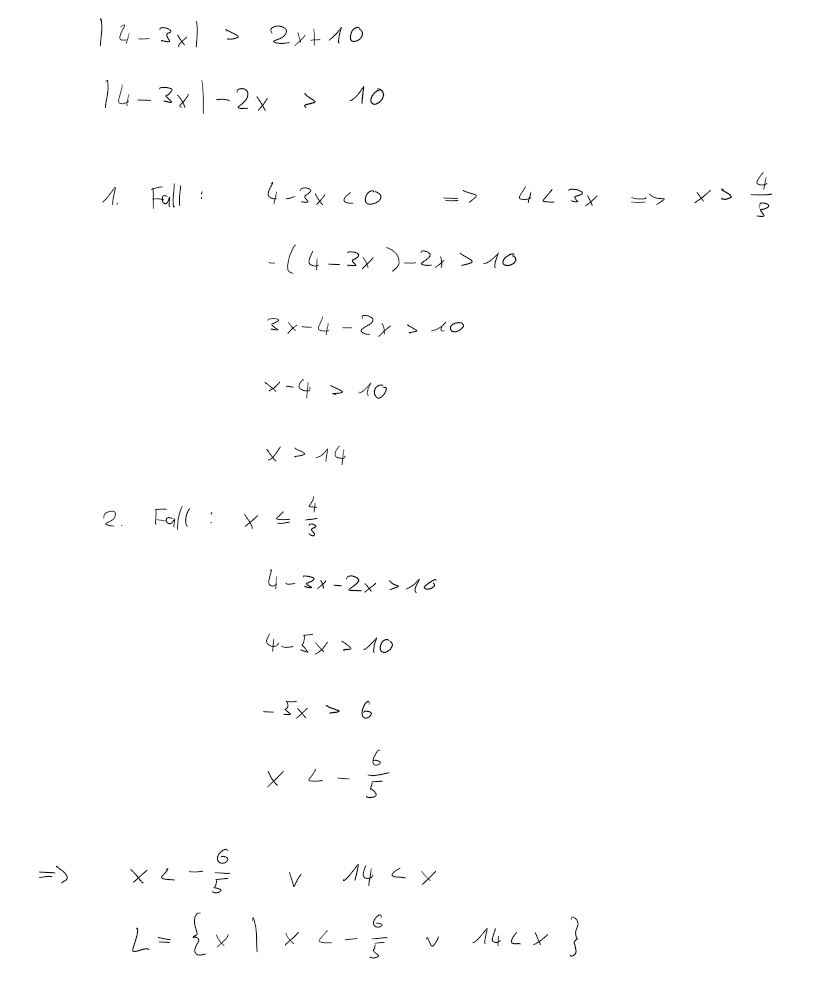 |4-3x| > 2x+10
|4-3x|-2x > 10
1. Fall: 4-3x < 0 => 4 < 3x => x > 4/3
-(4-3x)-2x > 10
3x-4-2x > 10
x-4 > 10
x > 14
2. Fall: x ≤ 4/3
4-3x-2x > 10
4-5x > 10
-5x > 6
x < -6/5
=> x < -6/5 v 14 < x
L = {x | x < -6/5 v 14 < x}